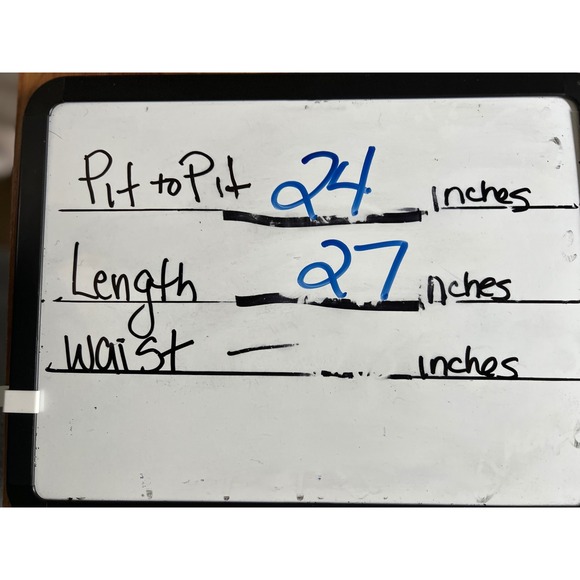 Pit to Pit 24 inches
Length 27 nches
Waist — inches